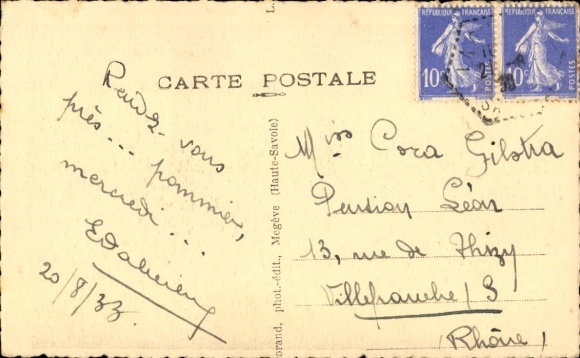 CARTE POSTALE
RÉPUBLIQUE FRANÇAISE
10c
POSTES
RÉPUBLIQUE FRANÇAISE
POSTES
Rendez-vous
près... pommier,
mercredi...
20/8/33
phot.-édit., Megève (Haute-Savoie)
Miss Cora Gilstra
Pension Léon
13, rue de Thizy
Villefranche/S
Rhône)